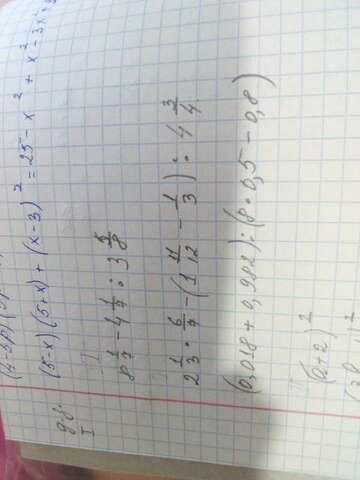 (5-x)(5+x)+(x-3)² = 25-x²+x²-3x
I
8 1/7 - 4 1/4 : 3 5/8
2 1/3 · 6/7 - (1 11/12 - 1/3) : 4 3/4
(0,018 + 0,982) : (8 · 0,5 - 0,8)
(a+2)²